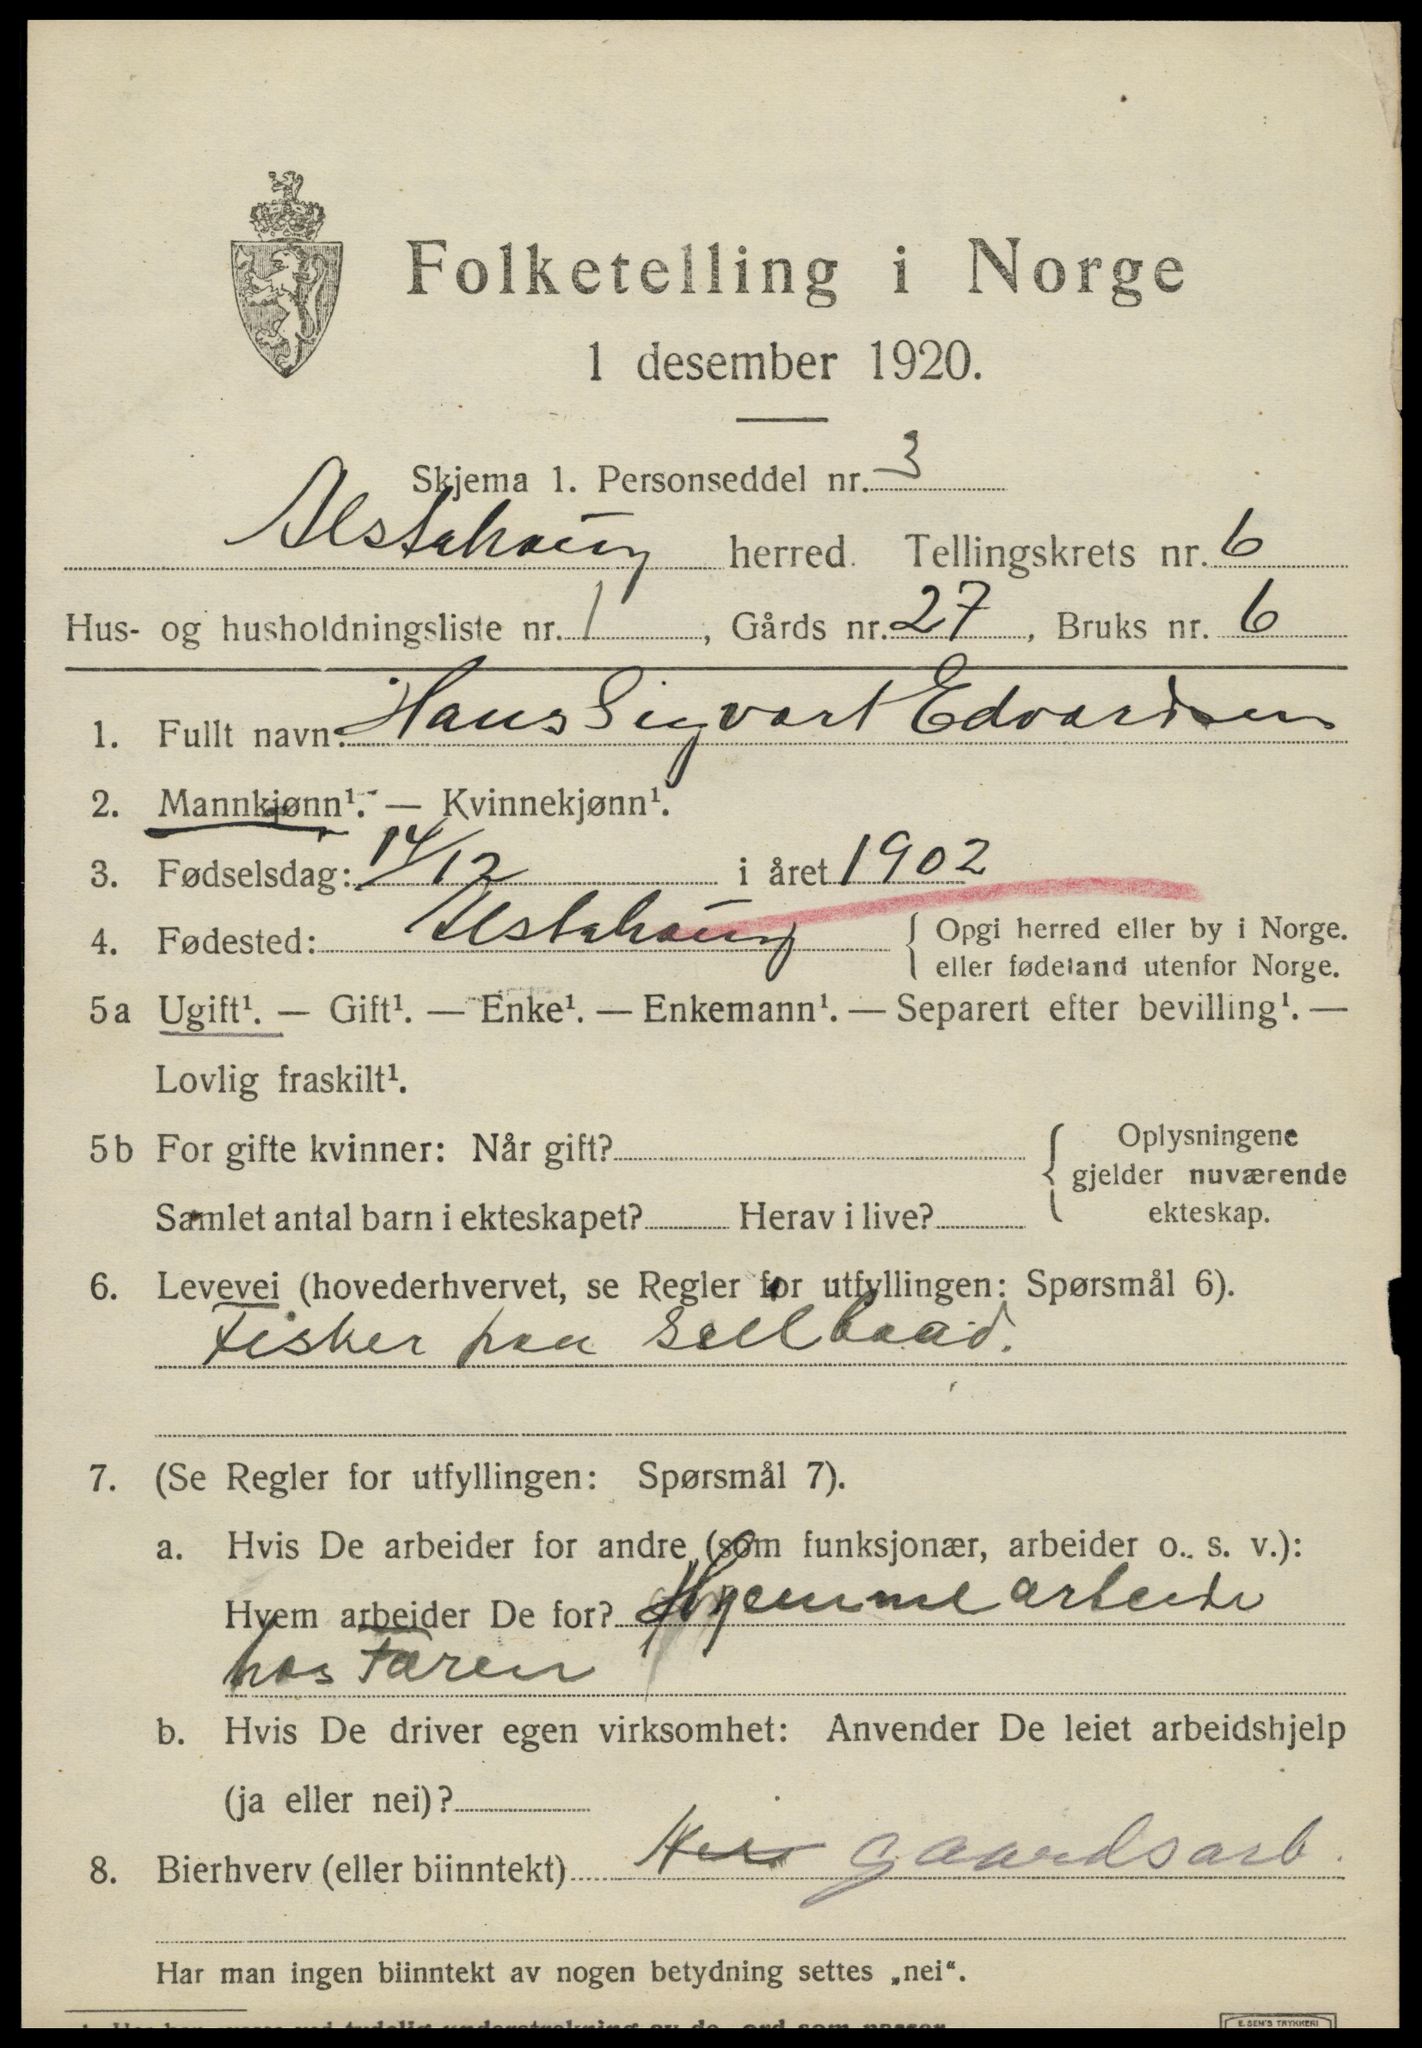 Folketelling i Norge
1 desember 1920.
Skjema 1. Personseddel nr. 3
Alstahoug herred. Tellingskrets nr. 6
Hus- og husholdningsliste nr. 1, Gårds nr. 27, Bruks nr. 6
1. Fullt navn: Hans Sigvart Edvardsen
2. Mannkjønn¹. — Kvinnekjønn¹.
3. Fødselsdag: 14/12 i året 1902
4. Fødested: Alstahoug { Opgi herred eller by i Norge.
eller fødeland utenfor Norge.
5a Ugift¹. — Gift¹. — Enke¹. — Enkemann¹. — Separert efter bevilling¹. —
Lovlig fraskilt¹.
5b For gifte kvinner: Når gift? { Oplysningene
gjelder nuværende
Samlet antal barn i ekteskapet? Herav i live? ekteskap.
6. Levevei (hovederhvervet, se Regler for utfyllingen: Spørsmål 6).
Fisker paa seilbaad.
7. (Se Regler for utfyllingen: Spørsmål 7).
a. Hvis De arbeider for andre (som funksjonær, arbeider o. s. v.):
Hvem arbeider De for? Hjemmearbeide
hos Faren
b. Hvis De driver egen virksomhet: Anvender De leiet arbeidshjelp
(ja eller nei)?
8. Bierhverv (eller biinntekt) gaardsarb.
Har man ingen biinntekt av nogen betydning settes „nei“.
E. SEM'S TRYKKERI